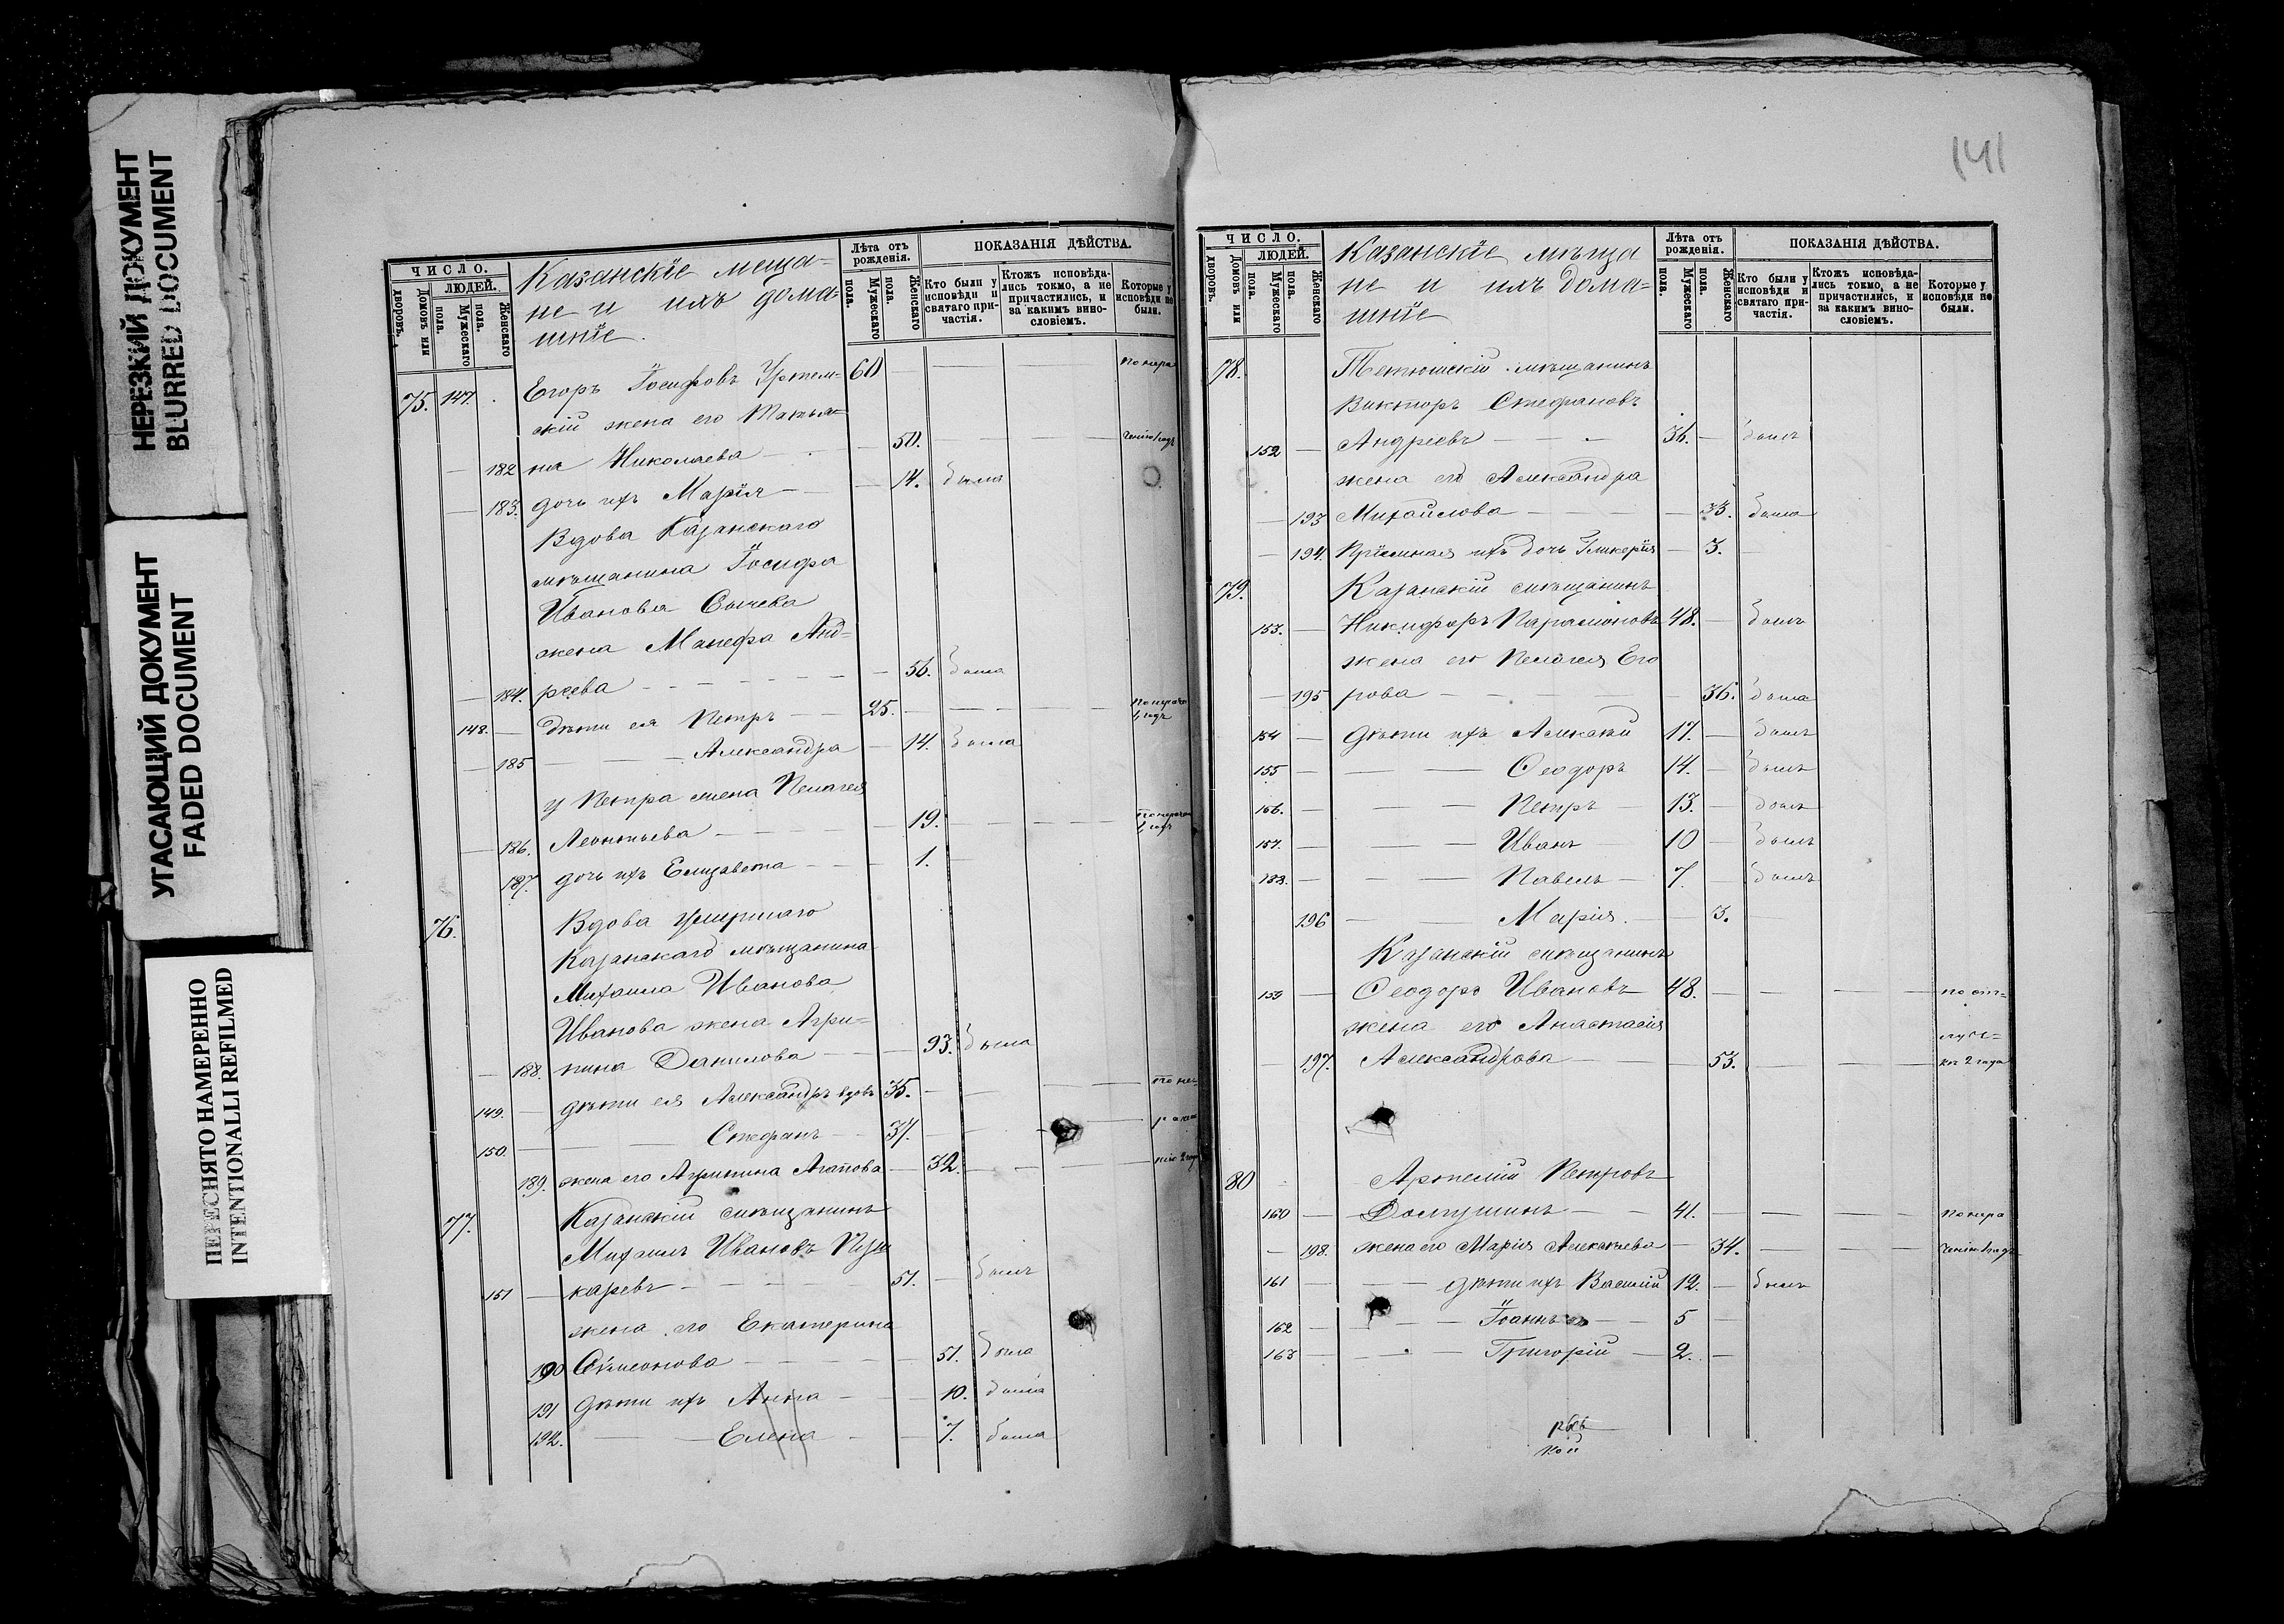 НЕРЕЗКИЙ ДОКУМЕНТ
BLURRED DOCUMENT
УГАСАЮЩИЙ ДОКУМЕНТ
FADED DOCUMENT
ПЕРЕСНЯТО НАМЕРЕННО
INTENTIONALLI REFILMED
ЧИСЛО.
ЛЮДЕЙ.
Домовъ или дворовъ.
Мужескаго пола.
Женскаго пола.
Казанскіе меща-
не и ихъ дома-
шніе.
Лѣта отъ рожденія.
Мужескаго пола.
Женскаго пола.
ПОКАЗАНІЯ ДѢЙСТВА.
Кто были у исповѣди и святаго причастія.
Ктожъ исповѣда-лись токмо, а не причастились, и за какимъ вино-словіемъ.
Которые у исповѣди не были.
75. 147. Егоръ Іосифовъ 60 по нера
скій жена его Татья-
182 на Николаева 50.
183. дочь ихъ Марія 14. была
Вдова Казанскаго
мѣщанина Іосифа
Иванова Сычева
жена Манефа Анд-
184. реева 56. была
148. дѣти ея Петръ 25. по нерач
185 Александра 14. была
у Петра жена Пелагея
186. Леонтьева 19. по нерач
187. дочь ихъ Елизавета 1.
76. Вдова умершаго
Казанскаго мѣщанина
Михаила Иванова
Иванова жена Агри-
188. пина Данилова 93. была
149. дѣти ея Александръ вдовъ 35. по не-
150. Стефанъ 37. раче
189. жена его Агрипина Агапова 32. нію 2 год
77. Казанскій мѣщанинъ
Михаилъ Ивановъ
151 каревъ 51. былъ
жена его Екатерина
190 Симеонова 51. была
191 дѣти ихъ Анна 10. была
192. Елена 7. была
141
ЧИСЛО.
ЛЮДЕЙ.
Домовъ или дворовъ.
Мужескаго пола.
Женскаго пола.
Казанскіе мѣща
не и ихъ дома-
шніе
Лѣта отъ рожденія.
Мужескаго пола.
Женскаго пола.
ПОКАЗАНІЯ ДѢЙСТВА.
Кто были у исповѣди и святаго при-частія.
Ктожъ исповѣда-лись токмо, а не причастились, и за какимъ вино-словіемъ.
Которые у исповѣди не были.
78. Тетюшскій мѣщанинъ
Викторъ Стефановъ
152 Андреевъ 36. былъ
жена его Александра
193 Михайлова 33. была
194. Пріемная ихъ дочь Гликерія 3.
79. Казанскій мѣщанинъ
153. Никифоръ Парамоновъ 48. былъ
жена его Пелагея Его
195 рова 36. была
154 дѣти ихъ Алексѣй 17. былъ
155 Ѳеодоръ 14. былъ
156. Петръ 13. былъ
157. Иванъ 10 былъ
158. Павелъ 7. былъ
196 Марія. 3.
Казанскій мѣщанинъ
159 Ѳеодоръ Ивановъ 48. по от-
жена его Анастасія лу
197. Александрова 53. 2 года
80 Артемій Петровъ
160 Долгушинъ 41. по нера
198. жена его Марія Алексѣева 34.
161 дѣти ихъ Василій 12. былъ
162 Іоаннъ 5
163 Григорій 2.